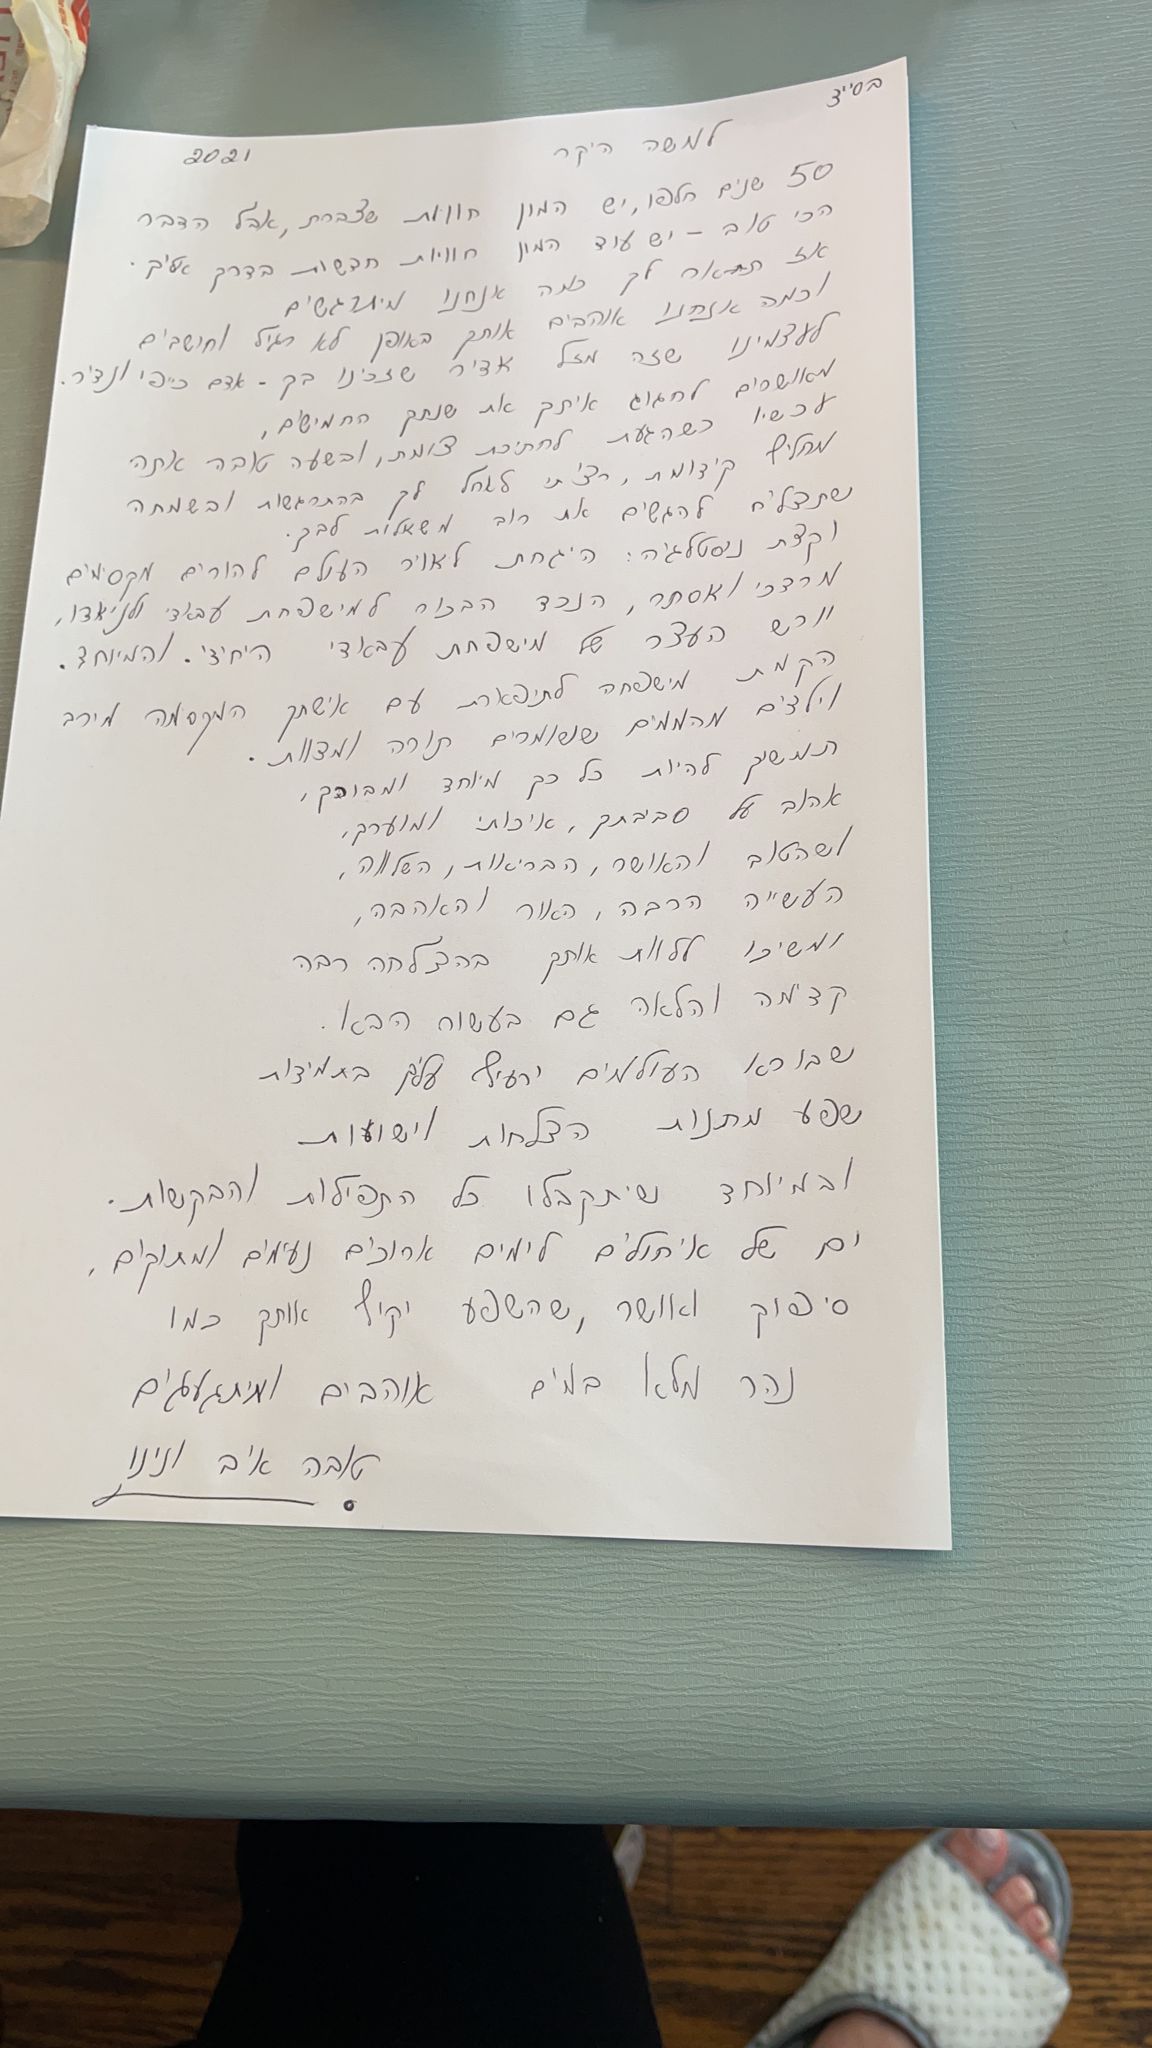 בס״ד
למשה היקר 2021
50 שנים חלפו, יש המון חוויות שצברת, אבל הדבר
הכי טוב - יש עוד המון חוויות חדשות בדרך אליך.
אז תתאר לך כמה אנחנו מיתרגשים
וכמה אנחנו אוהבים אותך באופן לא רגיל וחושבים
לעצמינו שזה מזל אדיר שזכינו בך - אדם כייפי ונדיר.
מאושרים לחגוג איתך את שנתך החמישים,
עכשיו כשהגעת לחתיכת צומת, ובשעה טובה אתה
מחליף קידומת, רציתי לאחל לך בהתרגשות ובשמחה
שתצליח להגשים את רוב משאלות לבך.
וקצת נוסטלגיה: היגחת לאויר העולם להורים מקסימים
מרדכי ואסתר, הנכד הבכור למישפחת עבאדי
יורש העצר של מישפחת עבאדי היחידי. והמיוחד.
הקמת מישפחה לתיפארת עם אישתך המקסימה מירב
וילדים מהממים ששומרים תורה ומצוות.
תמשיך להיות כל כך מיוחד ומבורך,
אהוב על סביבתך, איכותי ומוערך,
ושהטוב והאושר, הבריאות, השלווה,
העשייה הרבה, האור והאהבה,
ומשיכו ללוות אותך בהצלחה רבה
קדימה והלאה גם בעשור הבא.
שבורא העולמים ירעיף עליך בתמידות
שפע מתנות הצלחות וישועות
ובמיוחד שיתקבלו כל התפילות והבקשות.
ים של איחולים לימים ארוכים נעימים ומתוקים,
סיפוק ואושר, שהשפע יקיף אותך כמו
נהר מלא במים אוהבים ומיתגעגים
טובה איב ונינו